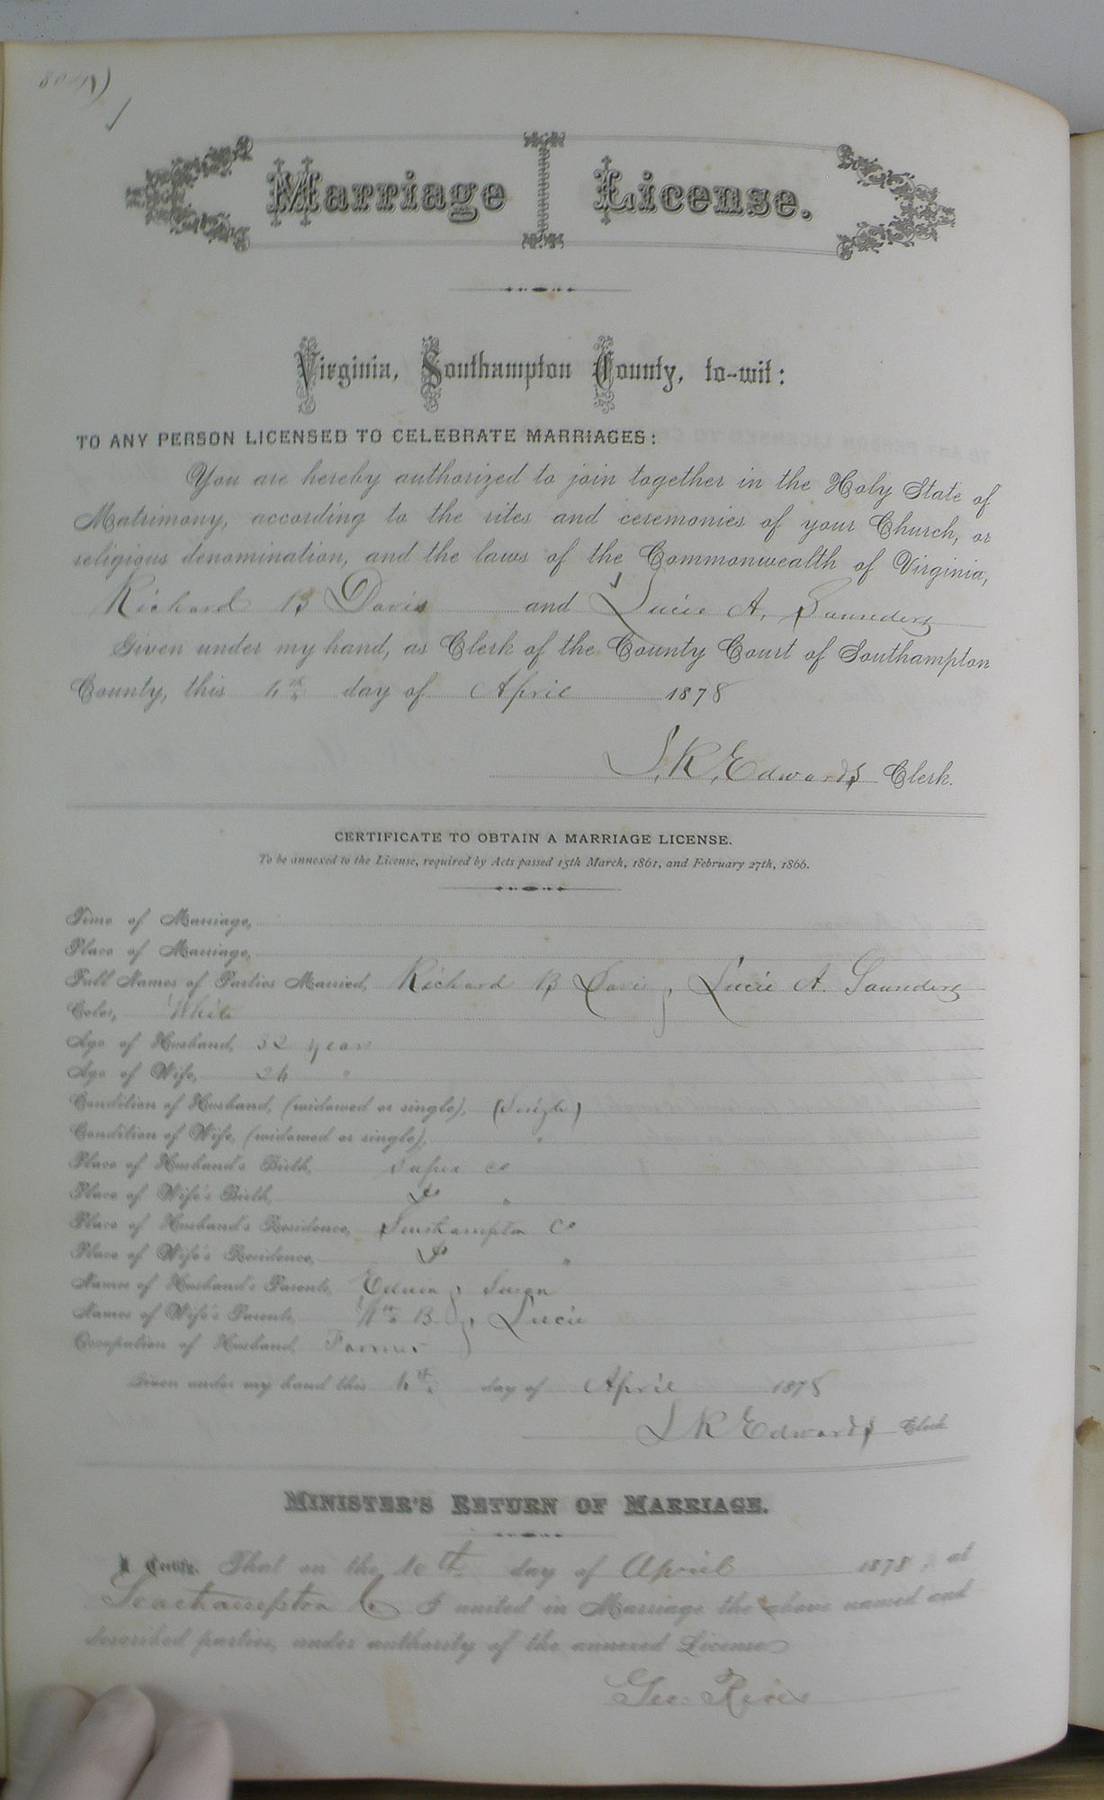 Marriage License.
Virginia, Southampton County, to-wit:
TO ANY PERSON LICENSED TO CELEBRATE MARRIAGES:
You are hereby authorized to join together in the Holy State of
Matrimony, according to the rites and ceremonies of your Church, or
religious denomination, and the laws of the Commonwealth of Virginia,
Richard B Davis and Lucie A. Saunders
Given under my hand, as Clerk of the County Court of Southampton
County, this day of April 1878
L. R. Edwards Clerk.
CERTIFICATE TO OBTAIN A MARRIAGE LICENSE.
To be annexed to the License, required by Acts passed 15th March, 1861, and February 27th, 1866.
Time of Marriage,
Place of Marriage,
Full Names of Parties Married, Richard B Davis, Lucie A. Saunders
Color, White
Age of Husband, 32 years
Age of Wife, "
Condition of Husband, (widowed or single), (Single)
Condition of Wife, (widowed or single), "
Place of Husband's Birth, Sussex Co
Place of Wife's Birth, "
Place of Husband's Residence, Southampton Co
Place of Wife's Residence, "
Names of Husband's Parents, Edwin, Susan
Names of Wife's Parents, Wm B, Lucie
Occupation of Husband, Farmer
Given under my hand this day of April 1878
L R Edwards Clerk
MINISTER'S RETURN OF MARRIAGE.
I Certify, That on the 10th day of April 1878, at
Southampton Co I united in Marriage the above named and
described parties, under authority of the annexed License
Geo.